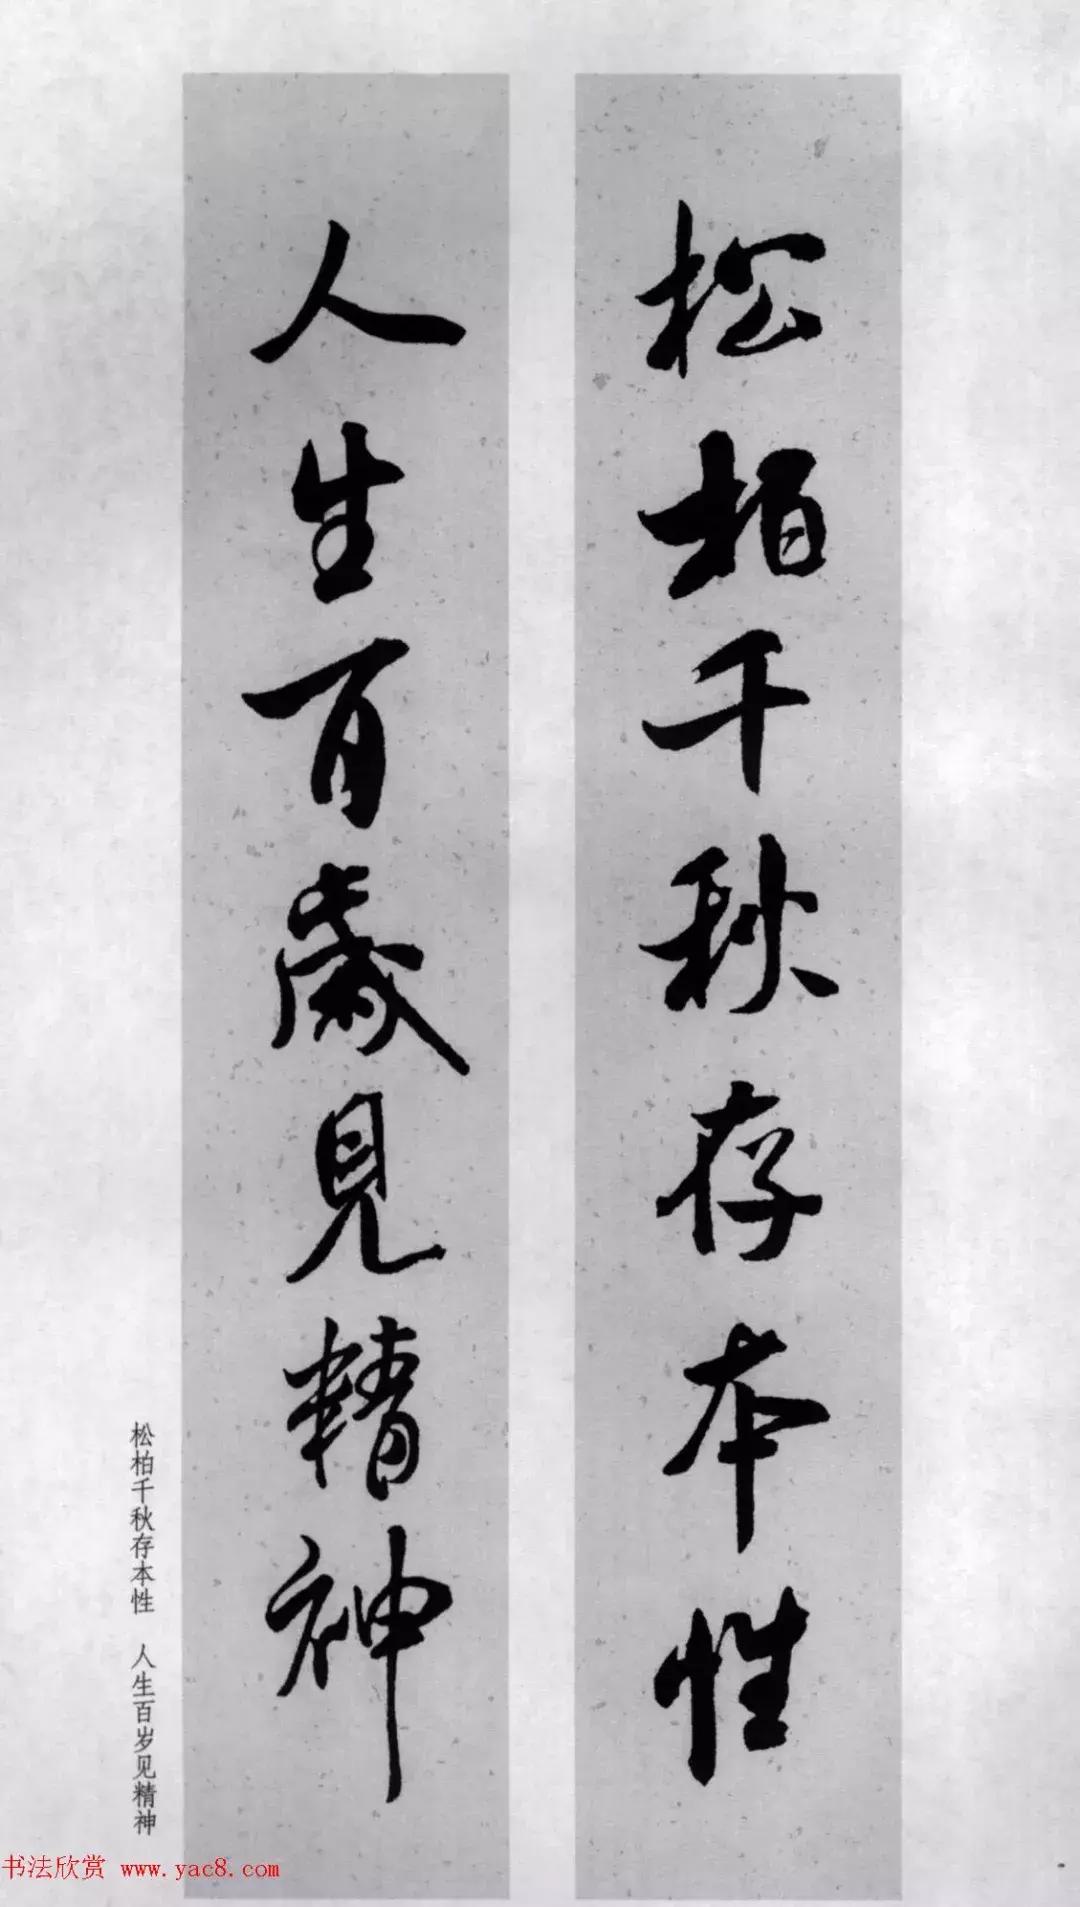 松柏千秋存本性
人生百歲見精神
松柏千秋存本性 人生百岁见精神
书法欣赏 www.yac8.com